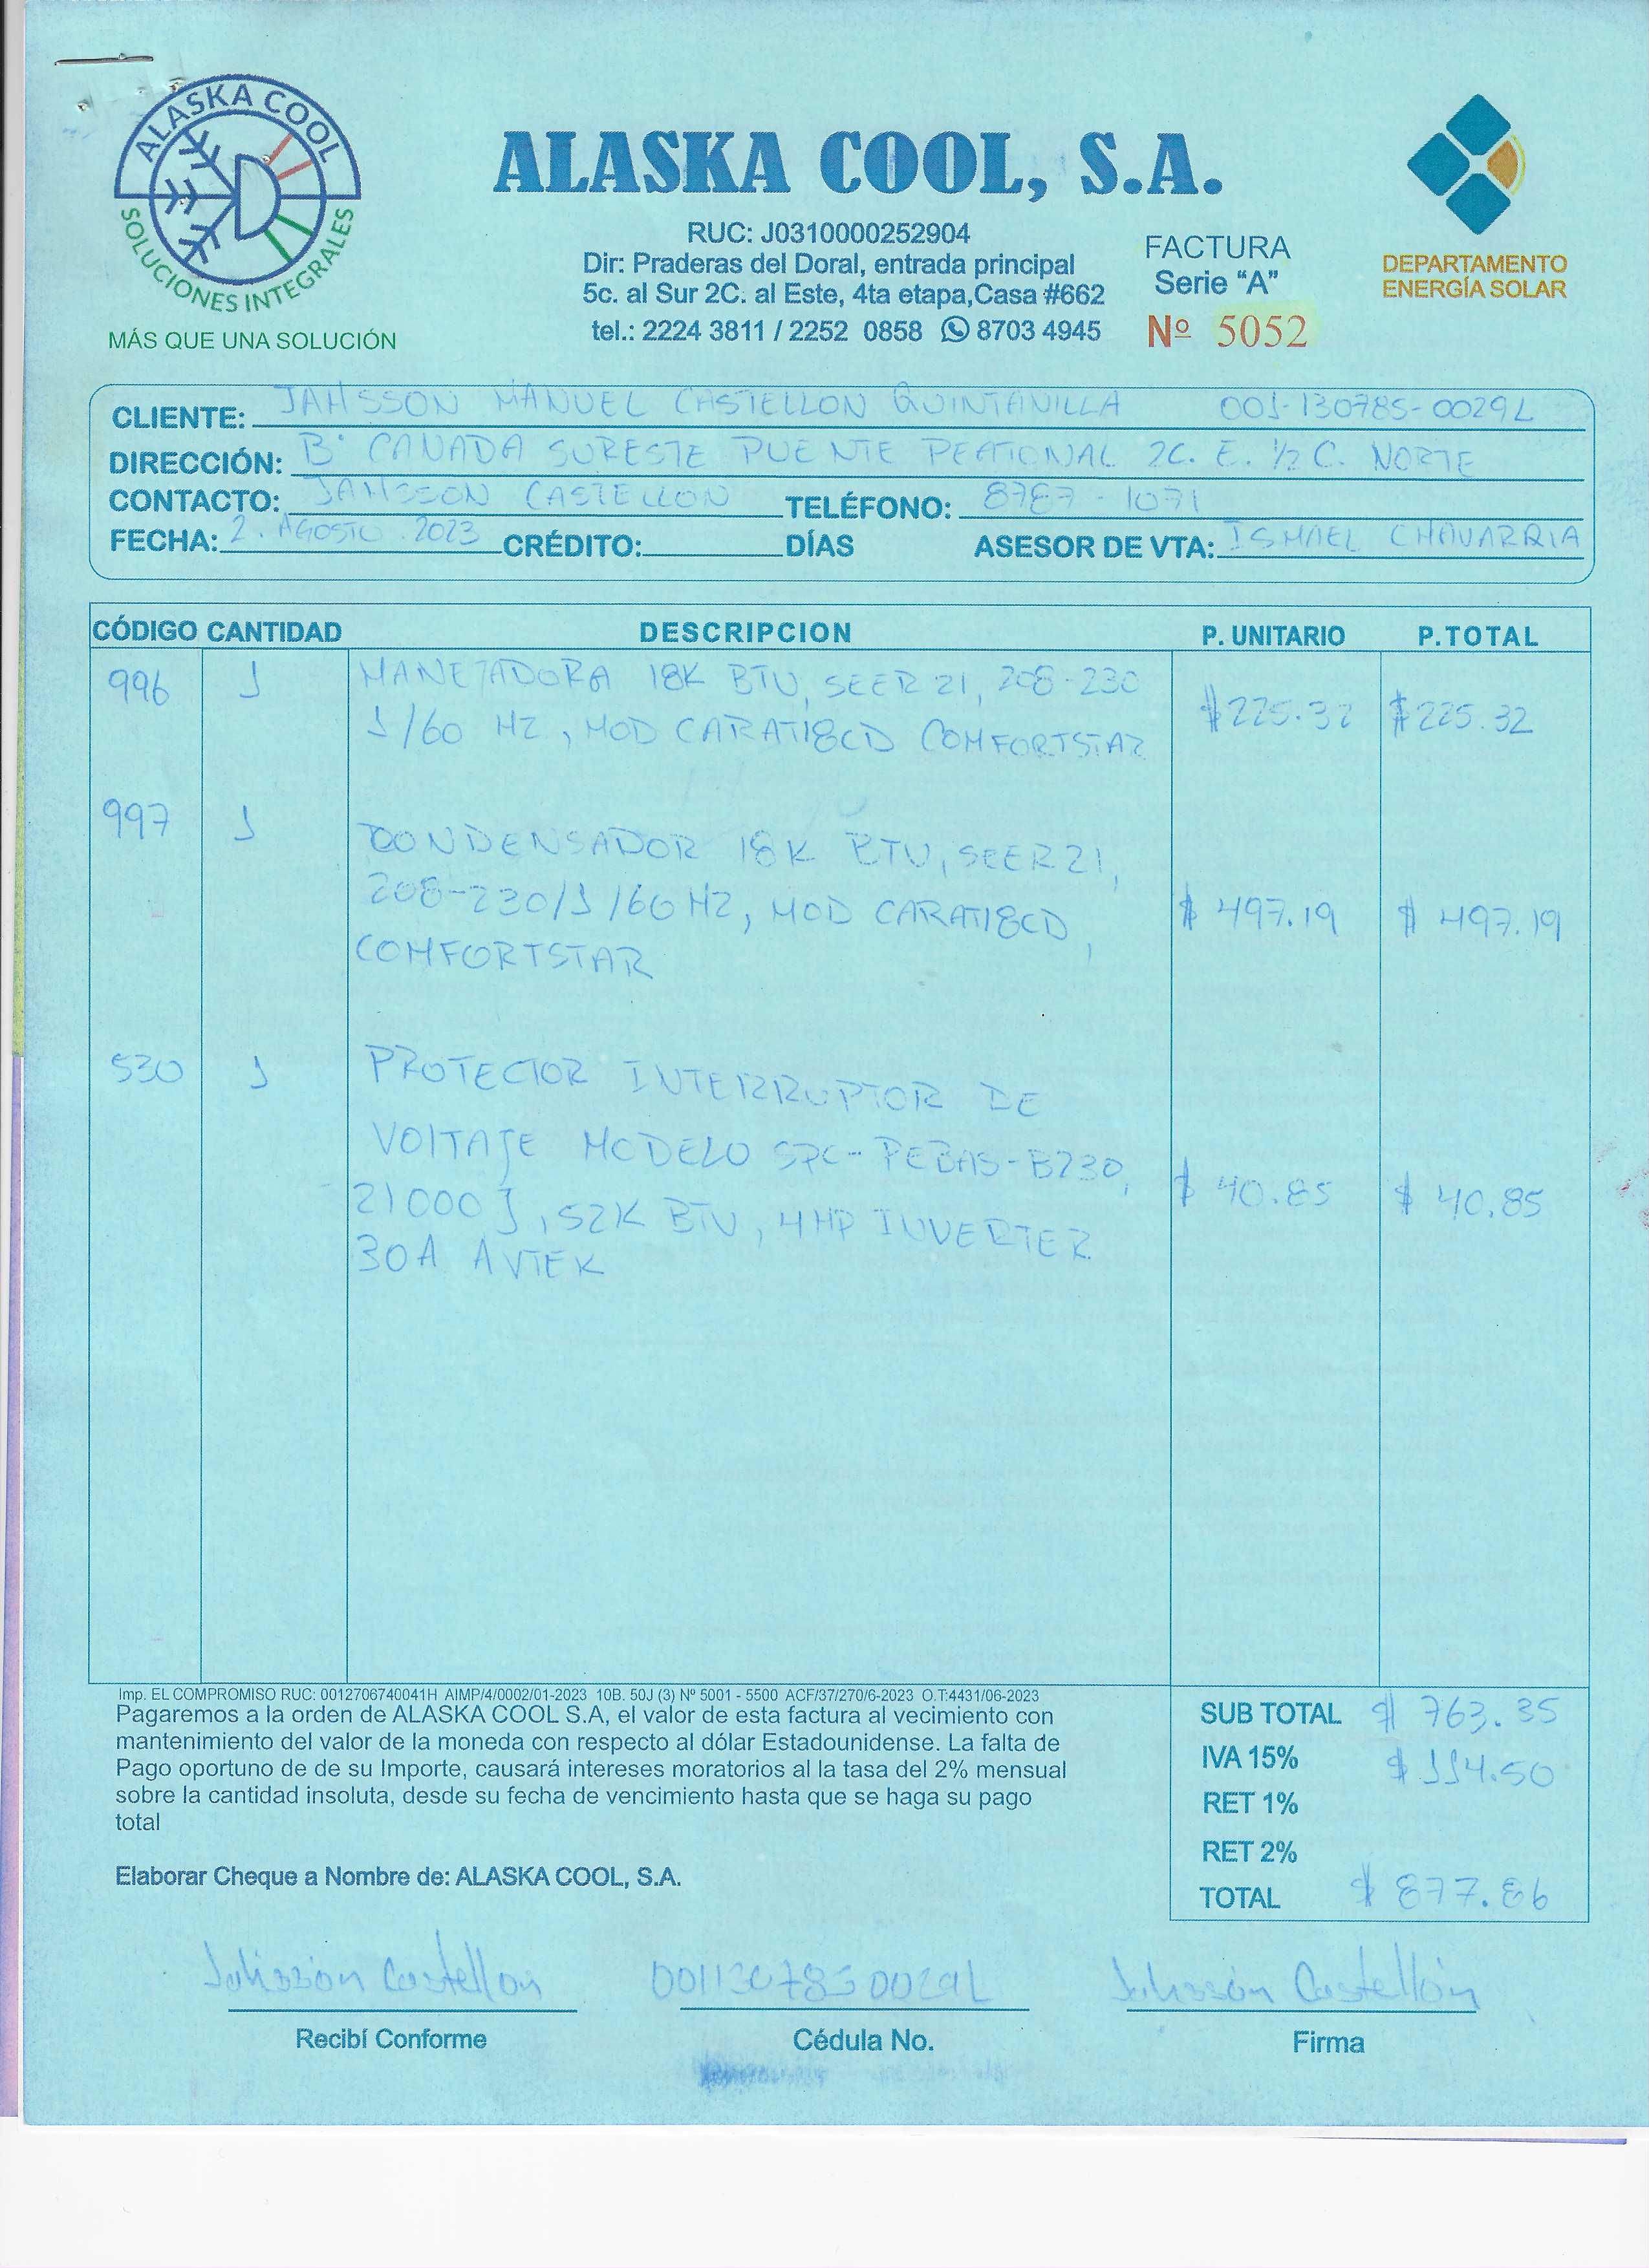 ALASKA COOL
SOLUCIONES INTEGRALES
MÁS QUE UNA SOLUCIÓN
ALASKA COOL, S.A.
RUC: J0310000252904
Dir: Praderas del Doral, entrada principal
5c. al Sur 2C. al Este, 4ta etapa,Casa #662
tel.: 2224 3811 / 2252 0858 8703 4945
FACTURA
Serie "A"
Nº 5052
DEPARTAMENTO
ENERGÍA SOLAR
CLIENTE: JAHSSON MANUEL CASTELLON QUINTANILLA 001-130785-0029L
DIRECCIÓN: Bº CANADA SURESTE PUENTE PEATIONAL 2C. E. ½ C. NORTE
CONTACTO: JAHSSON CASTELLON TELÉFONO: 8787-1071
FECHA: 2. AGOSTO .2023 CRÉDITO: DÍAS ASESOR DE VTA: ISMAEL CHAVARRIA
CÓDIGO CANTIDAD DESCRIPCION P. UNITARIO P.TOTAL
996 1 MANEJADORA 18K BTU, SEER 21, 208-230
1/60 HZ, MOD CARATI8CD COMFORTSTAR $225.32 $225.32
997 1 CONDENSADOR 18K BTU, SEER 21,
208-230/1/60HZ, MOD CARATI8CD, $ 497.19 $ 497.19
COMFORTSTAR
530 1 PROTECTOR INTERRUPTOR DE
VOLTAJE MODELO SPC-PEBAS-B230, $ 40.85 $ 40.85
21000J, 52K BTU, 4HP INVERTER
30A AVTEK
Imp. EL COMPROMISO RUC: 0012706740041H AIMP/4/0002/01-2023 10B. 50J (3) Nº 5001 - 5500 ACF/37/270/6-2023 O.T:4431/06-2023
Pagaremos a la orden de ALASKA COOL S.A, el valor de esta factura al vecimiento con
mantenimiento del valor de la moneda con respecto al dólar Estadounidense. La falta de
Pago oportuno de de su Importe, causará intereses moratorios al la tasa del 2% mensual
sobre la cantidad insoluta, desde su fecha de vencimiento hasta que se haga su pago
total
Elaborar Cheque a Nombre de: ALASKA COOL, S.A.
SUB TOTAL $ 763.35
IVA 15% $ 114.50
RET 1%
RET 2%
TOTAL $ 877.86
Jahsson Castellon 0011307850029L Jahssón Castellón
Recibí Conforme Cédula No. Firma